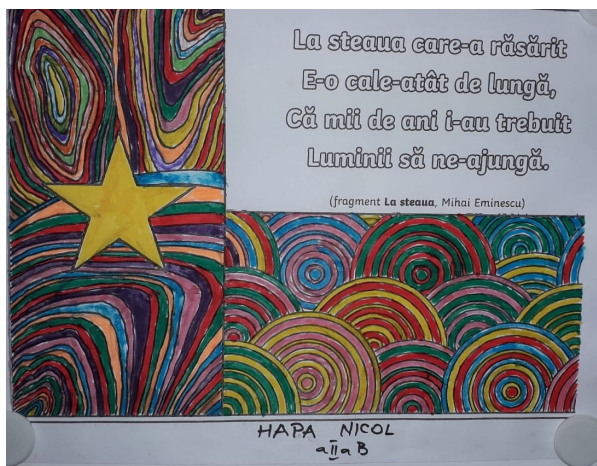 La steaua care-a răsărit
E-o cale-atât de lungă,
Că mii de ani i-au trebuit
Luminii să ne-ajungă.
(fragment La steaua, Mihai Eminescu)
HAPA NICOL
a II a B